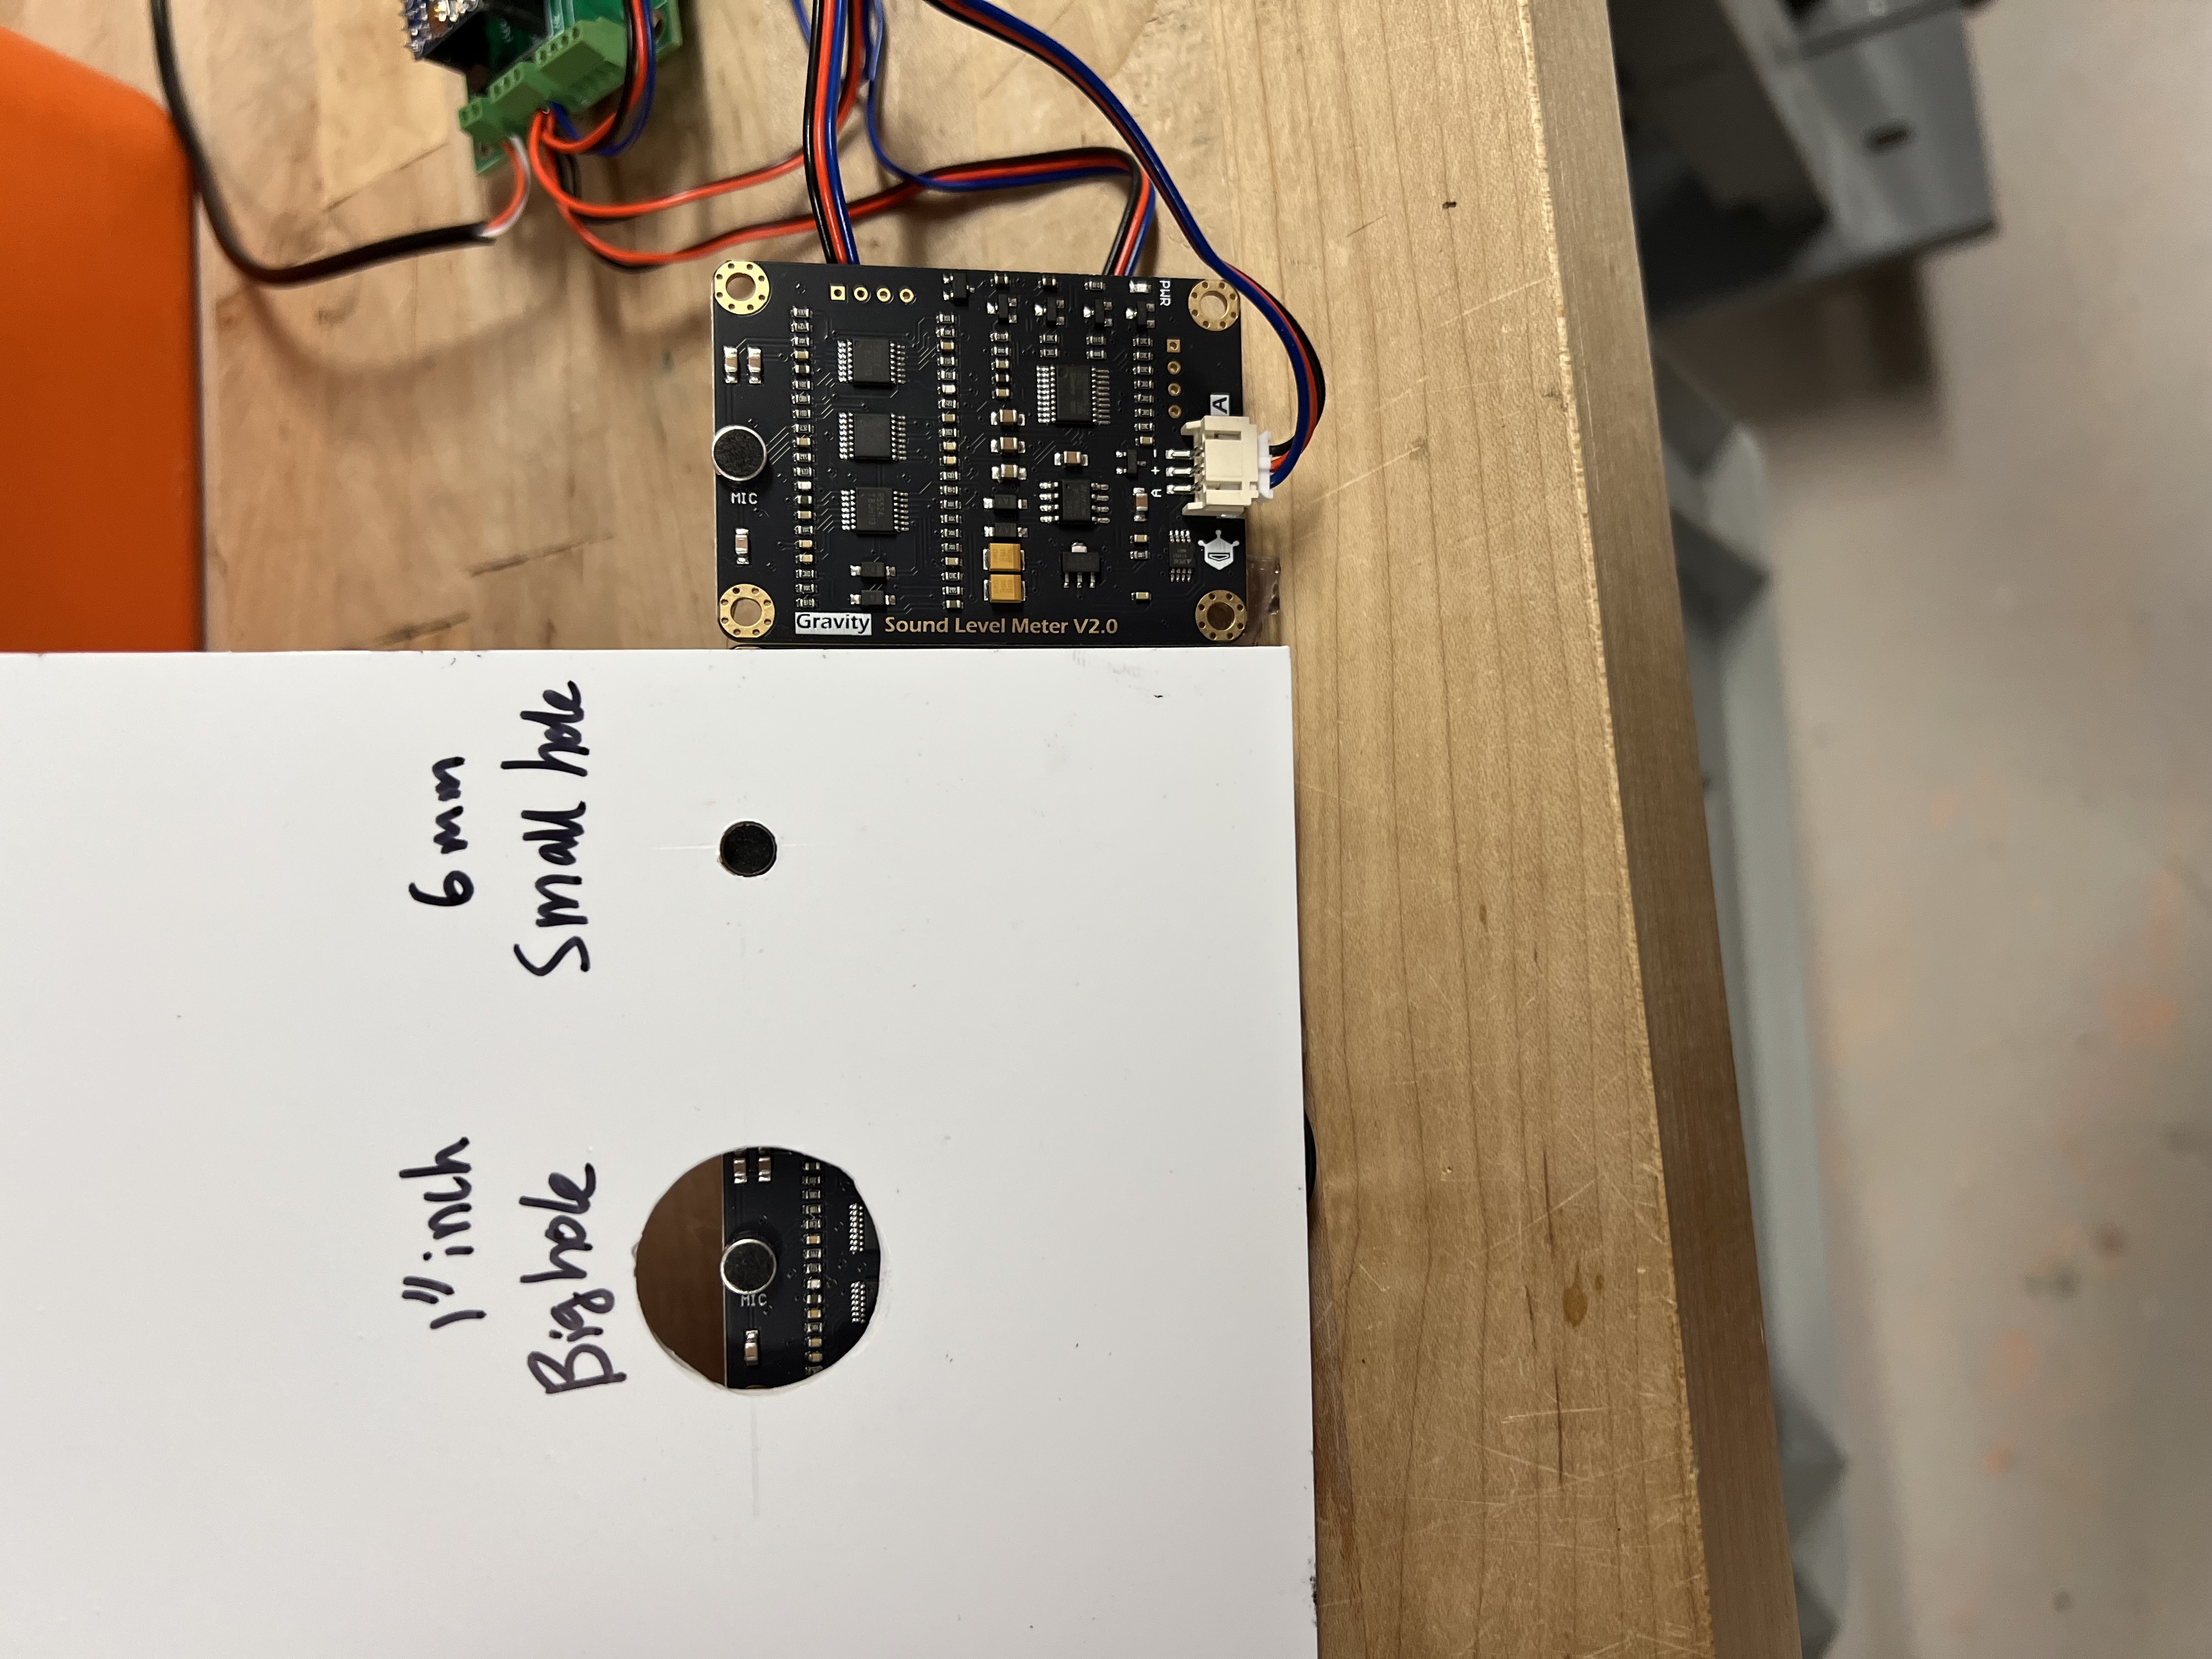 1" inch
Big hole
6 mm
Small hole
MIC
MIC
Gravity
Sound Level Meter V2.0
A + -
PWR
A